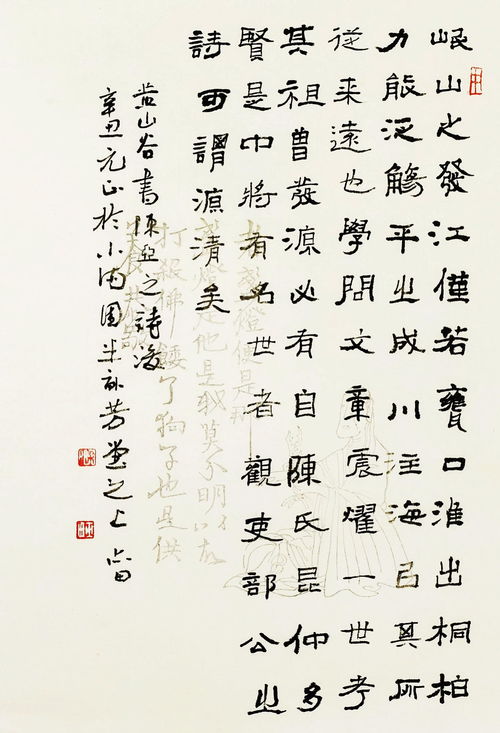 岷山之發江僅若甕口淮出桐柏
力能泛觴卒之成川注海㠯其所
從来遠也學問文章震耀一世考
其祖曾發源必有自陳氏昆仲多
賢是中將有名世者觀吏部公之
詩可謂源清矣
黃山谷書陳亞之詩後
辛丑元正於小滿園芳堂之上
燈便是那
燈是他是我莫不明
打殺佛餧了狗子也是供
養恭敬